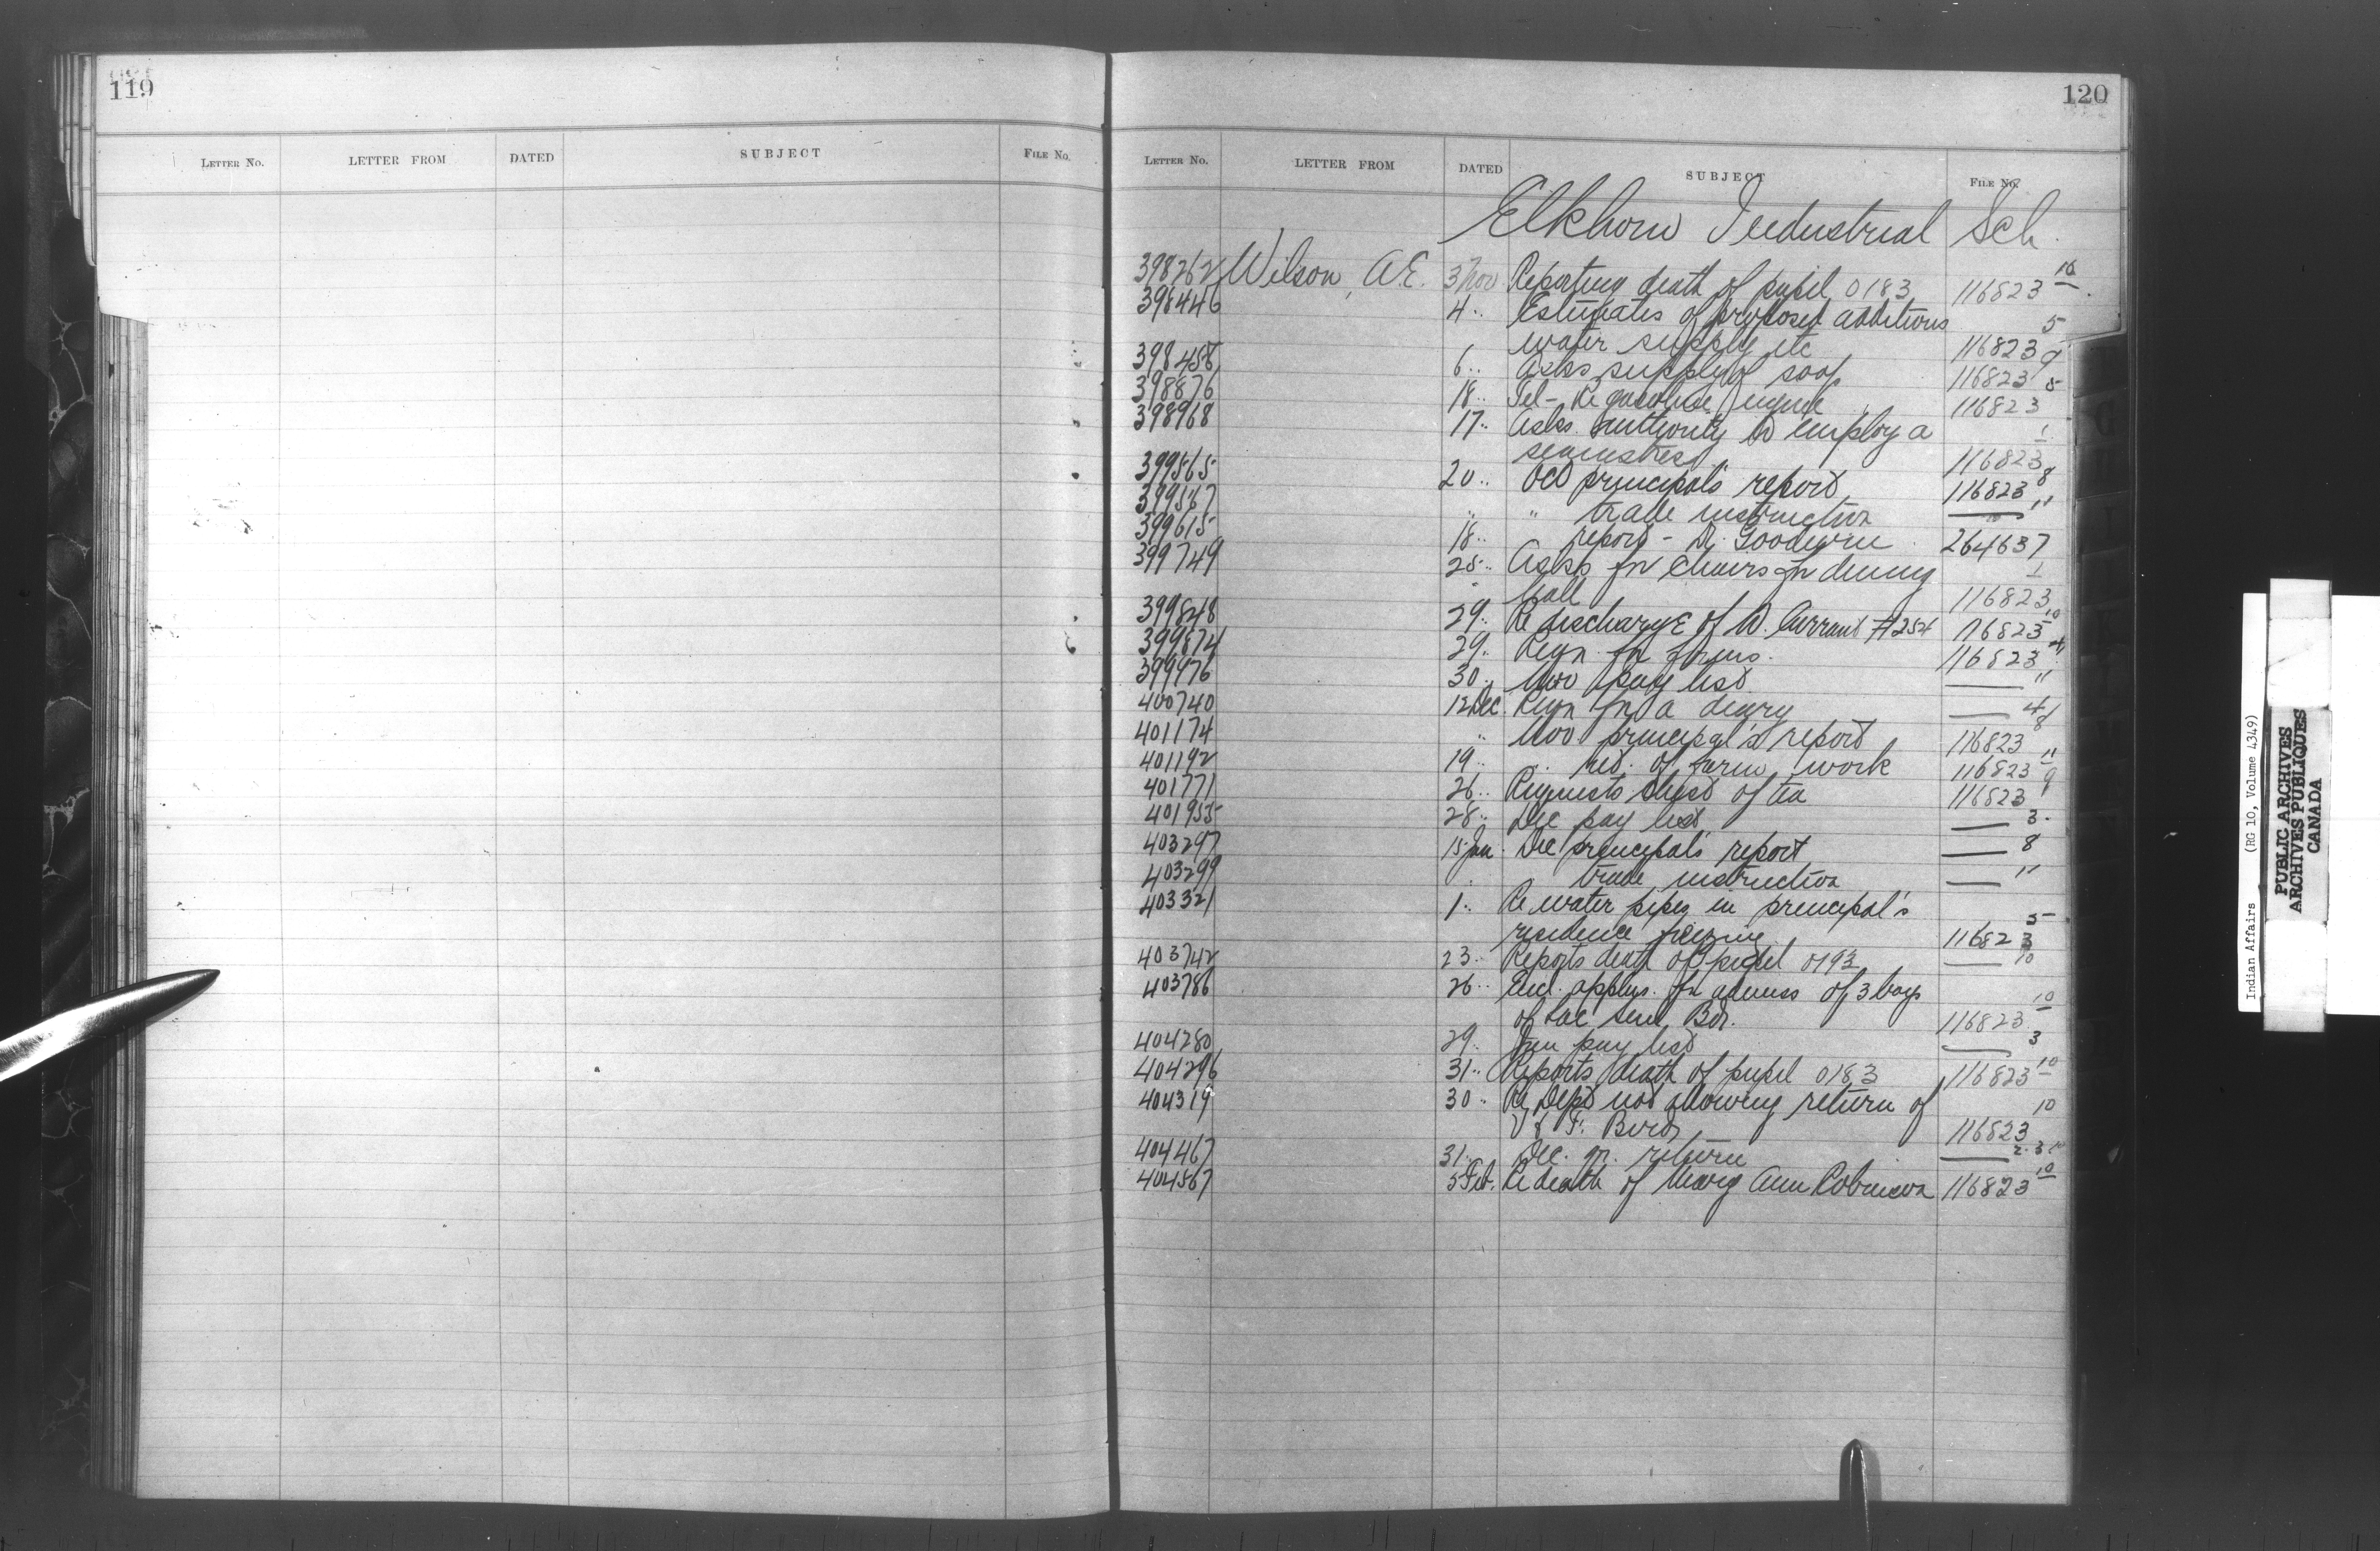 119
LETTER NO. LETTER FROM DATED SUBJECT FILE NO.
120
LETTER NO. LETTER FROM DATED SUBJECT FILE NO.
Elkhorn Industrial Sch.
398262 Wilson, A.E. 3 Nov Reporting death of pupil 0183 116823 10
398446 4 " Estimates of proposed additions
water supply etc 116823 5
398458 6 " Asks supply of soap 116823 9
398876 18 " Tel - Re gasoline engine 116823 5
398968 17 " Asks authority to employ a
seamstress 116823 1
399565 20 " Oct principal's report 116823 8
399567 " " trade instruction — 11
399615 18 " report - Dr. Goodwin 264637 10
399749 25 " Asks for chairs for dining
hall 116823 1
399848 29 " Re discharge of W. Currant #254 116823 10
399874 29 " Reqn for forms. 116823 4
399976 30 " Nov pay list — "
400740 12 Dec. Reqn for a diary — 4
401174 " Nov principal's report 116823 8
401192 19 " " ret. of farm work 116823 11
401771 26 " Requests chest of tea 116823 9
401955 28 " Dec pay list — 3
403297 15 Jan Dec principal's report — 8
403299 " trade instruction — 11
403321 1 " Re water pipes in principal's
residence freezing 116823 5
403742 23 " Reports death of pupil 0193 — 10
403786 26 " Encl. applns. for admiss of 3 boys
of Lac Seul Bd. 116823 10
404280 29 " Jan pay list — 3
404296 31 " Reports death of pupil 0183 116823 10
404319 30 " Re Dept not allowing return of
V & F. Bird 116823 10
404467 31 " Dec. qr. return — 2.3.10
404567 5 Feb. Re death of Mary Ann Robinson 116823 10
Indian Affairs (RG 10, Volume 4349)
PUBLIC ARCHIVES
ARCHIVES PUBLIQUES
CANADA